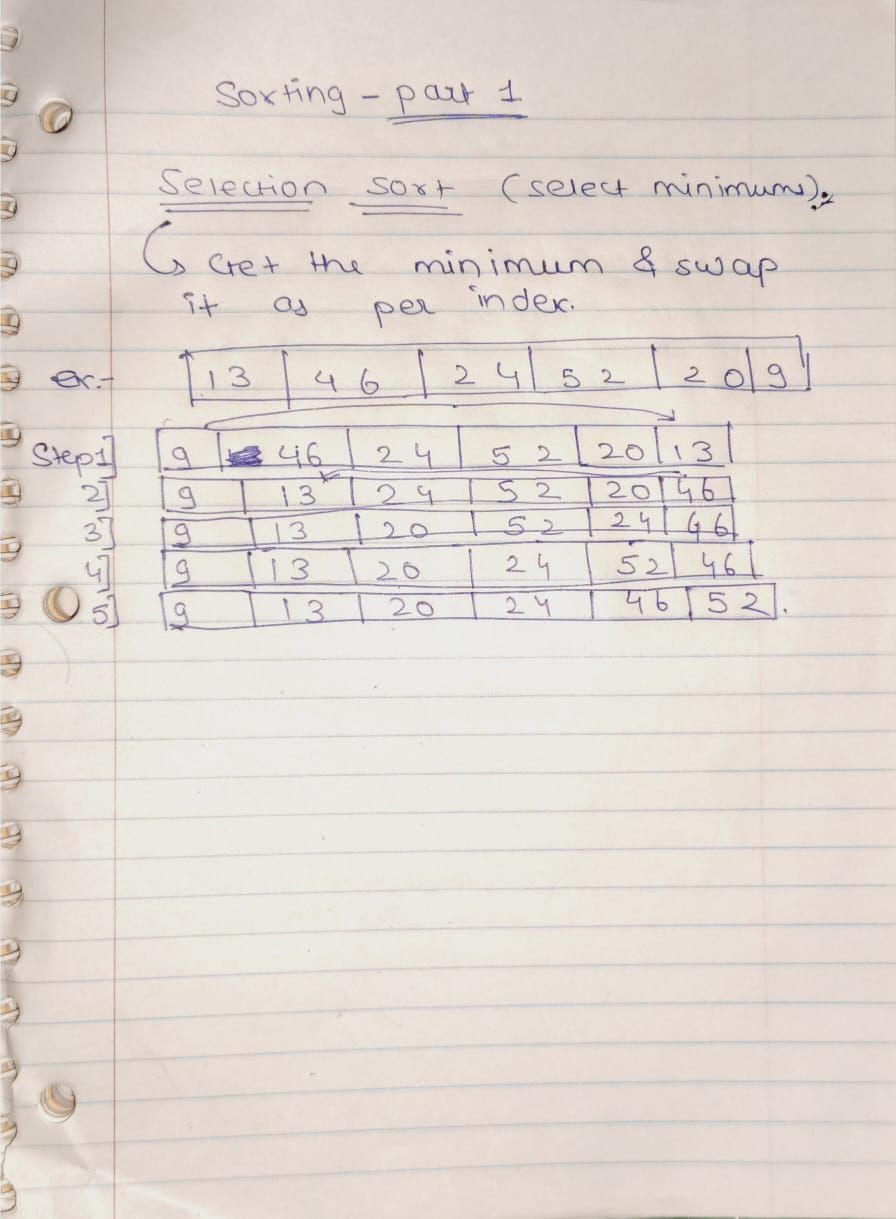 Sorting - part 1
Selection sort (select minimum).
↳ Get the minimum & swap
it as per index.
ex:- 13 46 24 52 20 9
Step1] 9 46 24 52 20 13
2] 9 13 24 52 20 46
3] 9 13 20 52 24 46
4] 9 13 20 24 52 46
5] 9 13 20 24 46 52.